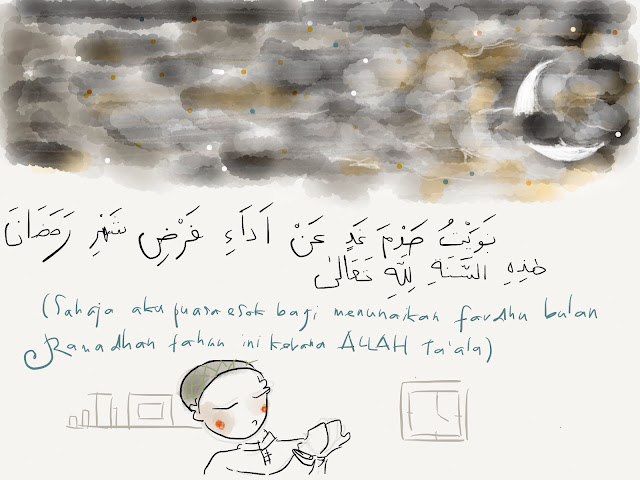 نَوَيْتُ صَوْمَ غَدٍ عَنْ اَدَاءِ فَرْضِ شَهْرِ رَمَضَانَ
هٰذِهِ السَّنَةِ لِلّٰهِ تَعَالىٰ
(Sahaja aku puasa esok bagi menunaikan fardhu bulan
Ramadhan tahun ini kerana ALLAH Ta'ala)